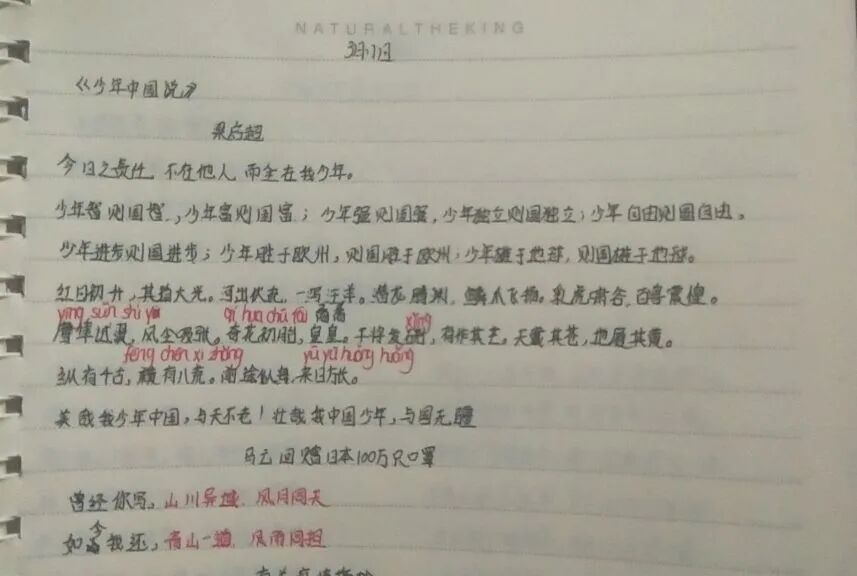 NATURALTHEKING
3月1日
《少年中国说》
梁启超
今日之责任,不在他人,而全在我少年。
少年智则国智,少年富则国富;少年强则国强,少年独立则国独立;少年自由则国自由。
少年进步则国进步;少年胜于欧州,则国胜于欧州;少年雄于地球,则国雄于地球。
红日初升,其道大光。河出伏流,一泻汪洋。潜龙腾渊,鳞爪飞扬。乳虎啸谷,百兽震惶。
ying sǔn shì yì qí huā chū tāi 矞矞 xíng
鹰隼试翼,风尘吸张。奇花初胎,皇皇。干将发硎,有作其芒。天戴其苍,地履其黄。
fēng chén xī zhāng yù yù huáng huáng
纵有千古,横有八荒。前途似海,来日方长。
美哉我少年中国,与天不老!壮哉我中国少年,与国无疆
马云回赠日本100万只口罩
曾经你写,山川异域,风月同天
如今我还,青山一道,风雨同担